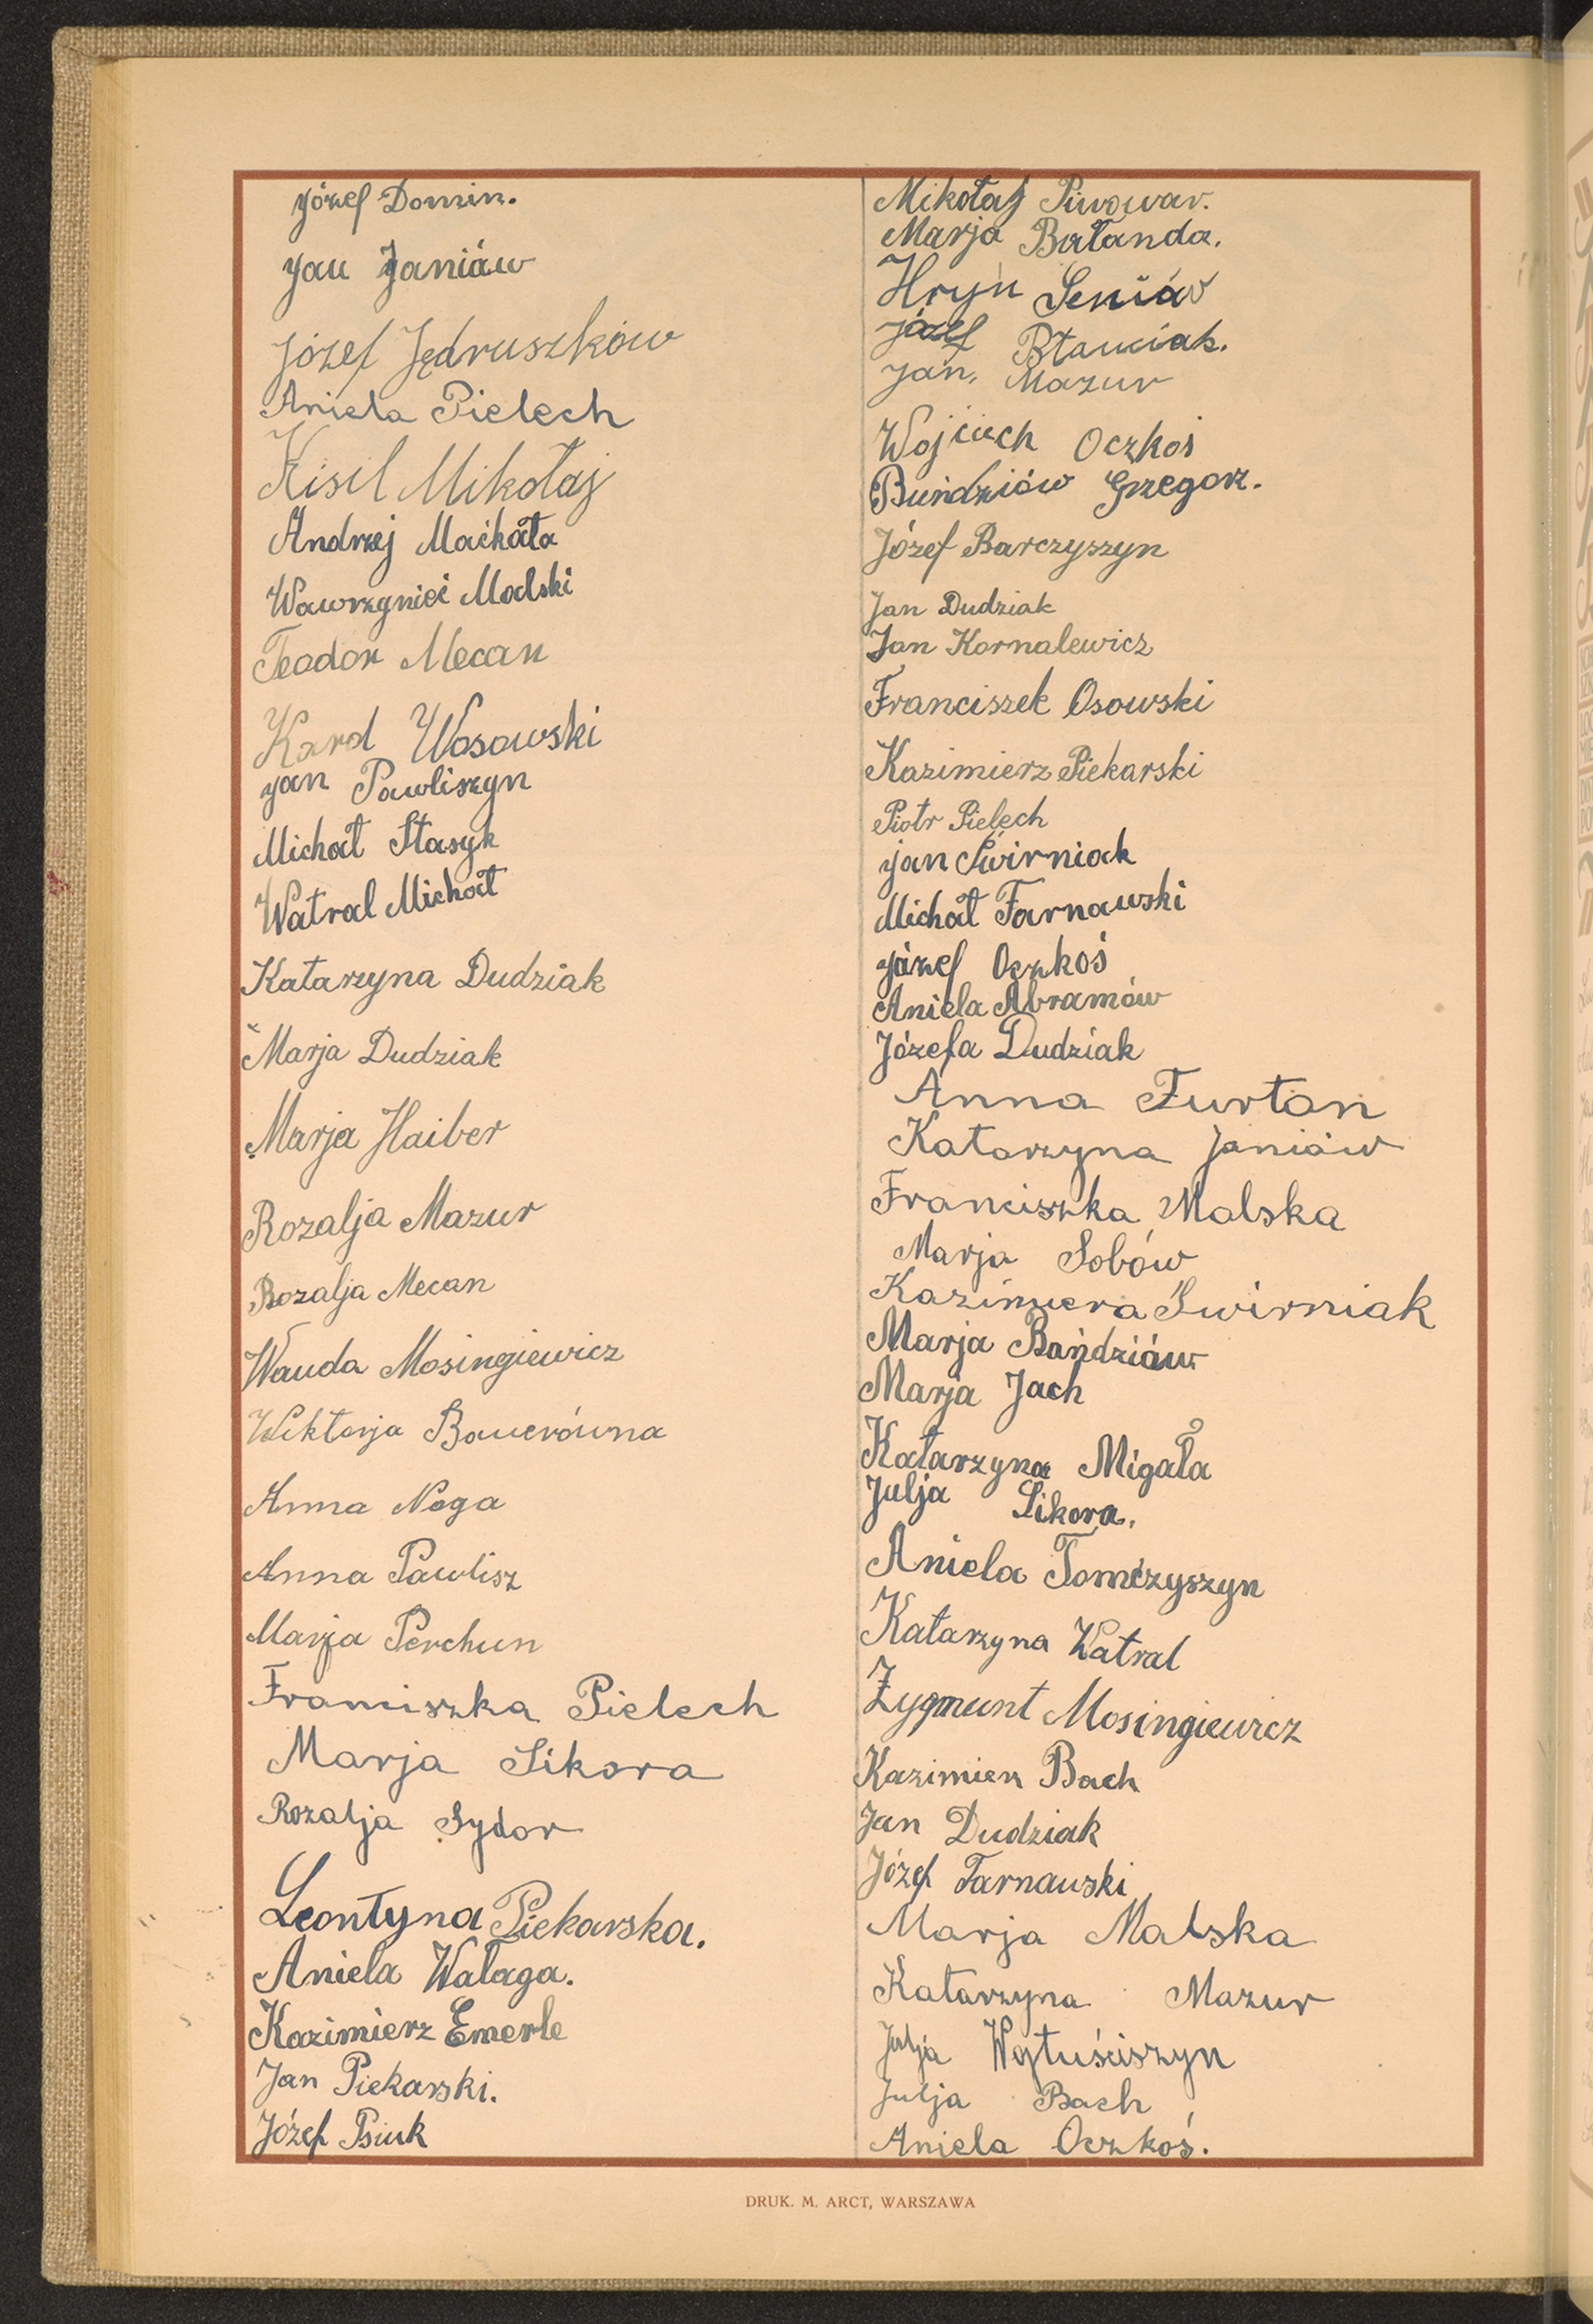 Józef Domin.
Jan Janiów
Józef Jędruszków
Aniela Pielech
Kisil Mikołaj
Andrzej Maćkała
Wawrzyniec Malski
Teodor Mecan
Karol Wosowski
Jan Pawliszyn
Michał Stasyk
Watral Michał
Katarzyna Dudziak
Marja Dudziak
Marja Haiber
Rozalja Mazur
Rozalja Mecan
Wanda Mosingiewicz
Wiktorja Bauerówna
Anna Noga
Anna Pawlisz
Marja Perchun
Franciszka Pielech
Marja Sikora
Rozalja Sydor
Leontyna Piekarska.
Aniela Walaga.
Kazimierz Emerle
Jan Piekarski.
Józef Psiuk
Mikołaj Piwowar.
Marja Bałanda.
Hryń Seniów
Józef
Jan, Mazur
Wojciech Oczkoś
Bundziów Grzegorz.
Józef Barczyszyn
Jan Dudziak
Jan Kornalewicz
Franciszek Osowski
Kazimierz Piekarski
Piotr Pielech
Jan Świrniak
Michał Tarnawski
Józef Oczkoś
Aniela Abramów
Józefa Dudziak
Anna Furtan
Katarzyna Janiów
Franciszka Malska
Marja Sobów
Kazimiera Świrniak
Marja Bańdziów
Marja Jach
Katarzyna Migała
Julja Sikora.
Aniela Tomczyszyn
Katarzyna Watral
Zygmunt Mosingiewicz
Kazimierz Bach
Jan Dudziak
Józef Tarnawski
Marja Malska
Katarzyna Mazur
Julja Wojtuściszyn
Julja Bach
Aniela Oczkoś.
DRUK. M. ARCT, WARSZAWA